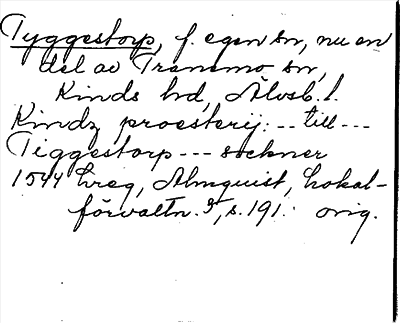 Tyggestorp, f. egen sn, nu en
del av Tranemo sn,
Kinds hd, Älvsb. l.
Kindz proesterij: -- till ---
Tiggestorp --- sochner
1544 Lreg, Almquist, Lokal-
förvaltn. 5, s. 191. orig.